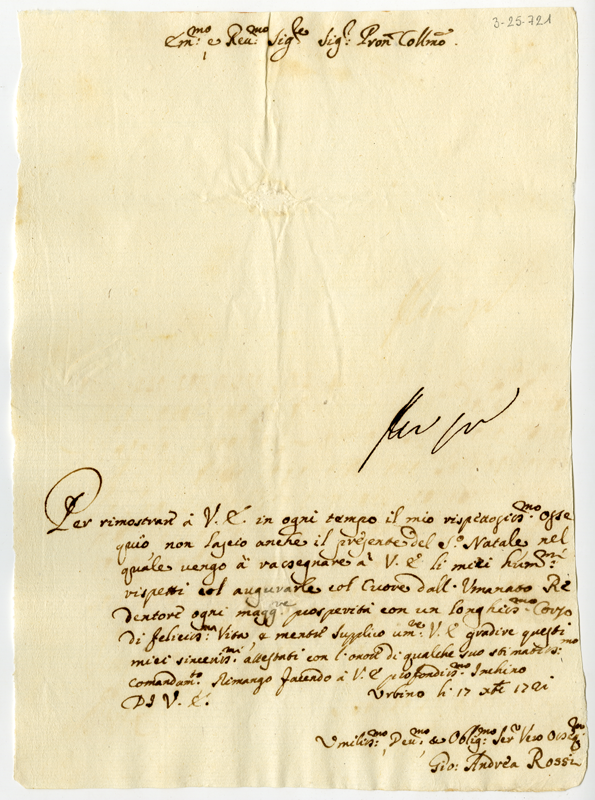 3-25-721
Em:mo e Rev:mo Sig:re Sig:r Pron Collmo.
Per rimostrare à V. E. in ogni tempo il mio rispettosiss:mo osse
quio non lascio anche il presente del S:o Natale nel
quale vengo à rassegnare à V. E. li miei hum:mi
rispetti col augurarle col Cuore dall'Umanato Re
dentore ogni magg:re prosperità con un longhiss:mo Corso
di feliciss:ma Vita, e mentre supplico um:te V. E. gradire questi
miei sinceriss:mi attestati con l'onore di qualche suo stimatiss:mo
comandam:to Rimango facendo à V. E. profondiss:mo Inchino
Di V. E.
Urbino li 17 Xbre 1721
Umiliss:mo Dev:mo & Oblig:mo Ser:re Vero Osseq:mo
Gio: Andrea Rossi